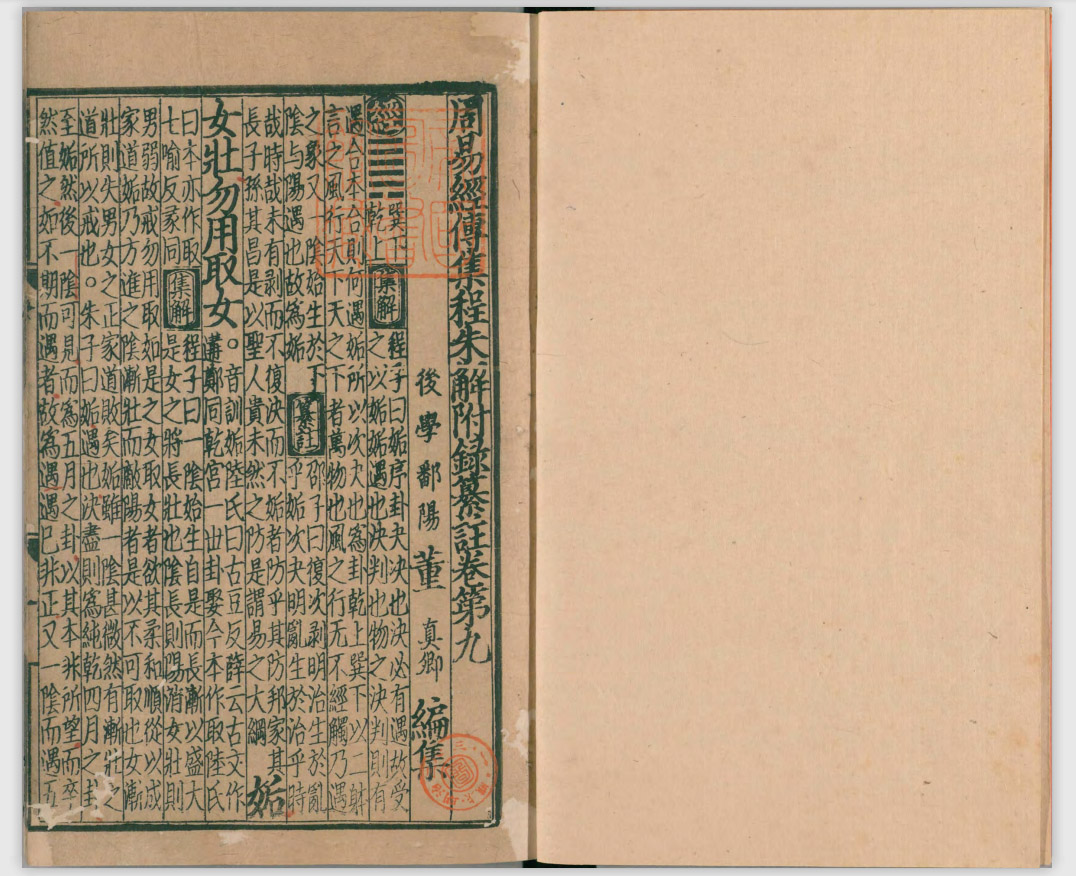 周易經傳集程朱解附録纂註卷第九
後學鄱陽董真卿編集
經䷫巽下
乾上集解程子曰姤序卦夬決也決必有遇故受
之以姤姤遇也決判也物之決判則有
遇合本合則何遇姤所以次夬也為卦乾上巽下以二體
言之風行天下天之下者萬物也風之行无不經觸乃遇
之象又一陰始生於下
陰与陽遇也故為姤纂註邵子曰復次剥明治生於亂
乎姤次夬明亂生於治乎時
哉時哉未有剥而不復夬而不姤者防乎其防邦家其
長子孫其昌是以聖人貴未然之防是謂易之大綱姤
女壯勿用取女。音訓姤陸氏曰古豆反薛云古文作
遘鄭同乾宫一世卦娶今本作取陸氏
曰本亦作取
七喻反彖同集解程子曰一陰始生自是而長漸以盛大
是女之將長壯也陰長則陽消女壯則
男弱故戒勿用取如是之女取女者欲其柔和順從以成
家道姤乃方進之陰漸壯而敵陽者是以不可取也女漸
壯則失男女之正家道敗矣姤雖一陰甚微然有漸壯之
道所以戒也。朱子曰姤遇也決盡則為純乾四月之卦
至姤然後一陰可見而為五月之卦以其本非所望而卒
然值之如不期而遇者故為遇遇已非正又一陰而遇五